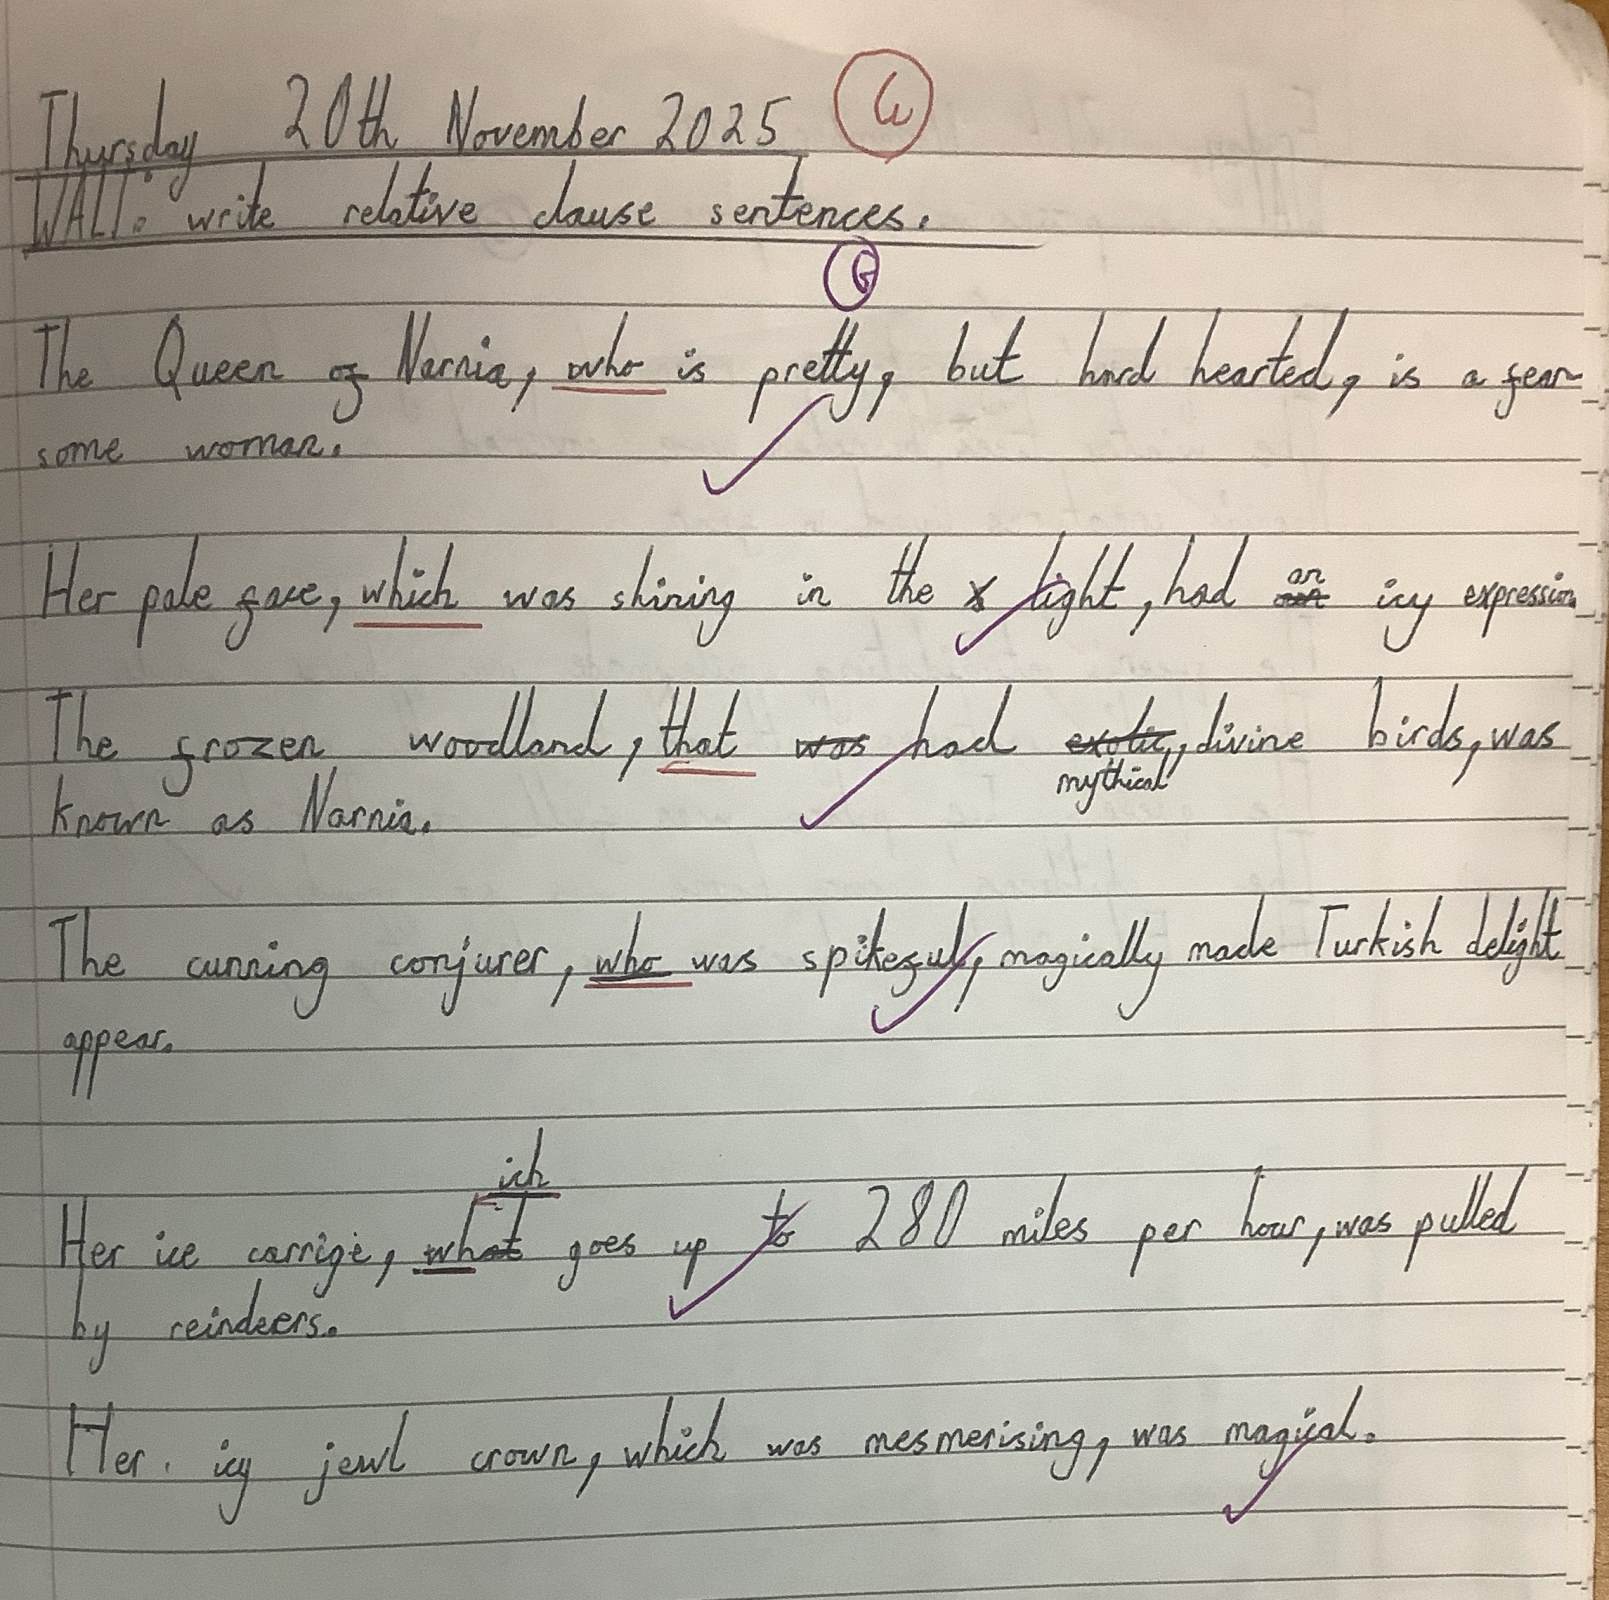 Thursday 20th November 2025
WALT: write relative clause sentences.
G
The Queen of Narnia, who is pretty, but hard hearted, is a fear
some woman.
Her pale face, which was shining in the light, had an icy expression
The frozen woodland, that was had exotic, divine birds, was
mythical
known as Narnia.
The cunning conjurer, who was spitesful, magically made Turkish delight
appear.
ich
Her ice carrige, what goes up to 280 miles per hour, was pulled
by reindeers.
Her icy jewl crown, which was mesmerising, was magical.